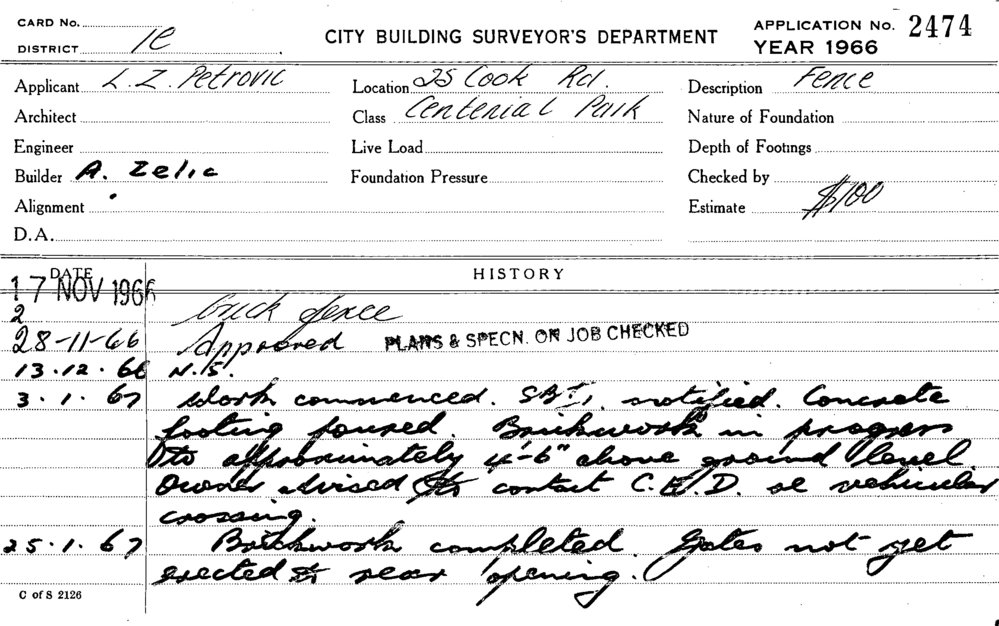 CARD No.
DISTRICT 1e
CITY BUILDING SURVEYOR'S DEPARTMENT
APPLICATION No. 2474
YEAR 1966
Applicant L. Z. Petrovic
Location 25 Cook Rd.
Description Fence
Architect
Class Centenial Park
Nature of Foundation
Engineer
Live Load
Depth of Footings
Builder A. Zelic
Foundation Pressure
Checked by
Alignment
Estimate $100
D.A.
DATE
HISTORY
17 NOV 1966
2 brick fence
28-11-66 Approved PLANS & SPECN. ON JOB CHECKED
13.12.66 N.S.
3.1.67 Work commenced. notified. Concrete
footing poured. Brickwork in progress
to approximately 4'-6" above ground level
Owner advised to contact C.E.D. re vehicular
crossing.
25.1.67 Brickwork completed. Gates not yet
erected to rear opening.
C of S 2126